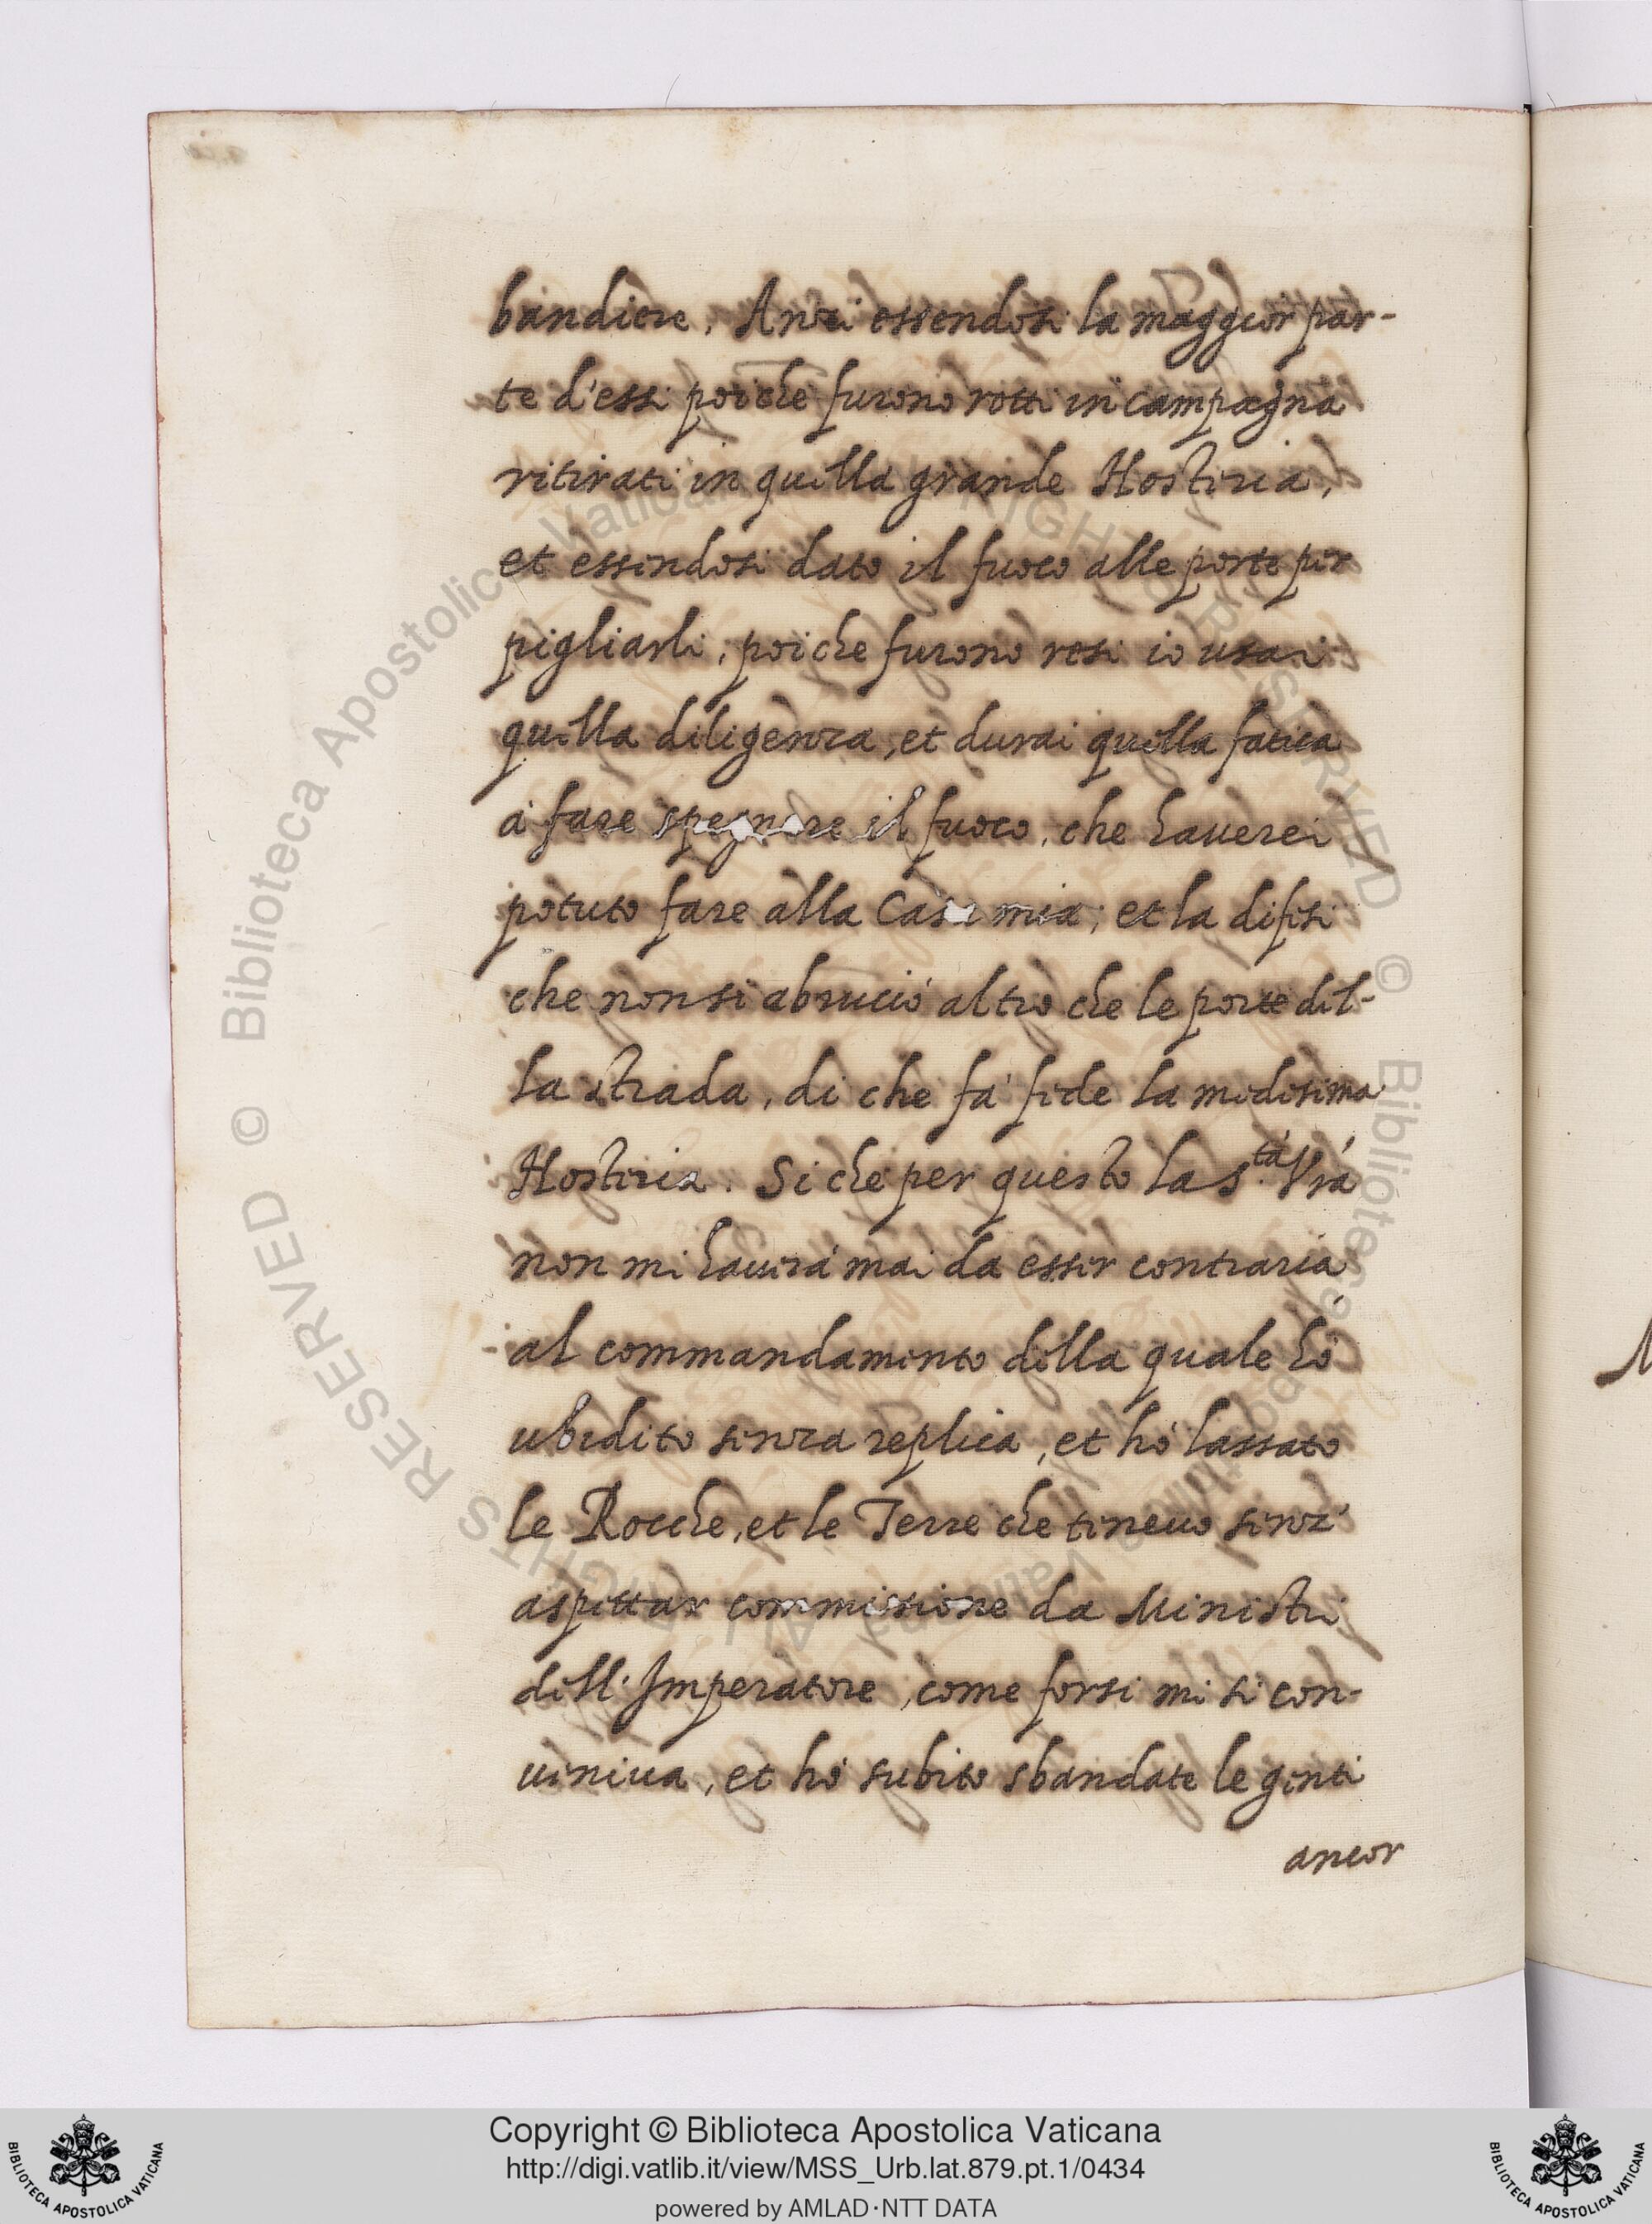 bandiere. Anzi essendosi la maggior par-
te d'essi poiche furono rotti in campagna
ritirati in quella grande Hosteria,
et essendosi dato il fuoco alle porte per
pigliarli, poiche furono resi io usai
quella diligenza, et durai quella fatica
à fare spegnere il fuoco, che haverei
potuto fare alla Casa mia; et la difesi
che non si abruciò altro che le porte del-
la strada, di che fà fede la medesima
Hosteria. Si che per questo la S.tà Vrà
non mi haverà mai da esser contraria
al commandamento della quale hò
ubedito senza replica, et hò lassato
le Rocche, et le Terre che tenevo senz'
aspettar commissione da Ministri
dell'Imperatore, come forsi mi si con-
veniva, et hò subito sbandate le genti
ancor
© Biblioteca Apostolica Vaticana ALL RIGHTS RESERVED
Copyright © Biblioteca Apostolica Vaticana
http://digi.vatlib.it/view/MSS_Urb.lat.879.pt.1/0434
powered by AMLAD·NTT DATA
BIBLIOTECA APOSTOLICA VATICANA
BIBLIOTECA APOSTOLICA VATICANA